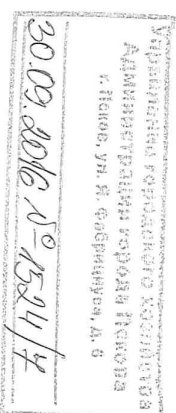 Управление городского хозяйства
Администрации города Пскова
г. Псков, ул. Я. Фабрициуса, д. 6
30.09.2016 № 1524/4